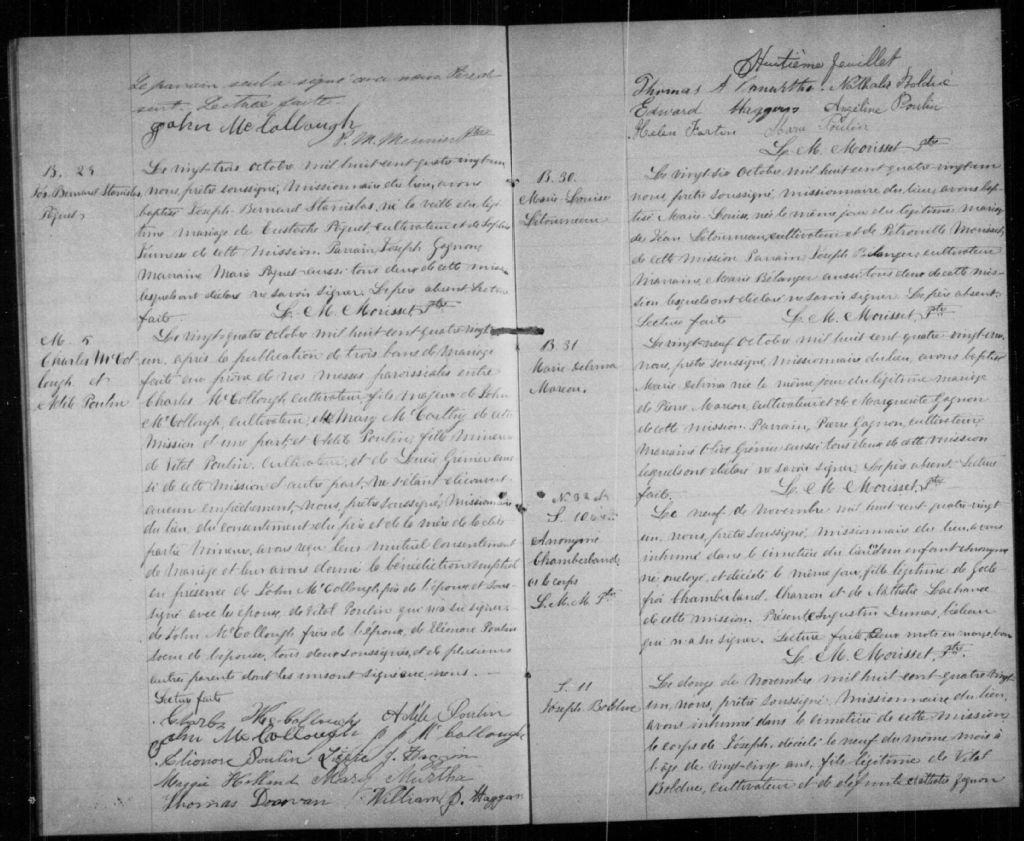 Le parrain seul a signé avec nous
Lecture faite
John McCollough
P. M. Meunier Ptre
B. 29
Jos. Bernard Stanislas
Le vingt-trois octobre mil huit cent quatre vingt un
nous, prêtre soussigné, missionnaire du lieu, avons
baptisé Joseph Bernard Stanislas, né la veille du légi
time mariage de Eustache cultivateur et de
de cette Mission. Parrain Joseph Gagnon,
Marraine Marie aussi tous deux de cette mission
lesquels ont déclaré ne savoir signer. Le père absent. Lecture
faite. L. M. Morisset Ptre
M. 5
Charles McCol
lough et
Adèle Poulin
Le vingt-quatre octobre mil huit cent quatre vingt
un, après la publication de trois bans de mariage
faite au prône de nos messes paroissiales entre
Charles McCollough cultivateur, fils majeur de John
McCollough, cultivateur, et de Mary McCarthy de cette
Mission d'une part, et Adèle Poulin, fille mineure
de Vital Poulin, cultivateur, et de Lucie Grenier aus
si de cette Mission d'autre part, ne s'étant découvert
aucun empêchement, Nous, prêtre soussigné, Missionnaire
du lieu, du consentement du père et de la mère de la dite
partie mineure, avons reçu leur mutuel consentement
de mariage et leur avons donné la bénédiction nuptiale
en présence de John McCollough, père de l'époux et sous
signé avec les époux, de Vital Poulin qui n'a su signer,
de John McCollough frère de l'époux, de Eléonore Poulin
soeur de l'épouse, tous deux soussignés, et de plusieurs
autres parents dont les uns ont signé avec nous.
Lecture faite
Charles McCollough Adèle Poulin
John McCollough J. P. McCollough
Eléonore Poulin Lizzie J. Haggan
Maggie Holland Mary Murtha
Thomas Donovan William J. Haggan
Huitième feuillet
Thomas A. Nathalie Bolduc
Edward Haggens Angéline Poulin
Helen Fortin Marie Poulin
L. M. Morisset Ptre
B. 30
Marie Louise
Létourneau
Le vingt six octobre mil huit cent quatre vingt un
nous, prêtre soussigné, missionnaire du lieu, avons bap
tisé Marie Louise, née le même jour du légitime mariage
de Jean Létourneau, cultivateur et de Pétronille Morisset,
de cette mission. Parrain Joseph Bélanger, cultivateur
Marraine Marie Bélanger aussi tous deux de cette mis
sion lesquels ont déclaré ne savoir signer. Le père absent.
Lecture faite L. M. Morisset, Ptre
B. 31
Marie Delvina
Marcou.
Le vingt-neuf octobre mil huit cent quatre-vingt-un,
nous, prêtre soussigné, Missionnaire du lieu, avons baptisé
Marie Delvina née le même jour du légitime mariage
de Pierre Marcou, cultivateur et de Marguerite Gagnon
de cette mission. Parrain, Pierre Gagnon, cultivateur,
Marraine Olive Grenier aussi tous deux de cette mission
lesquels ont déclaré ne savoir signer. Le père absent. Lecture
faite. L. M. Morisset, Ptre
N. 32 &
S. 10
Anonyme
Chamberland
L. M. M. Ptre
Le neuf de Novembre mil huit cent quatre vingt
un, nous, prêtre soussigné, missionnaire du lieu, avons
inhumé dans le cimetière du lieu un enfant anonyme
né ondoyé, et décédé le même jour, fille légitime de Gode
froi Chamberland, Charron et de Nathalie Lachance
de cette mission. Présent Augustin Dumas, bedeau
qui n'a su signer. Lecture faite. Deux mots en marge, bon
L. M. Morisset, Ptre.
S. 11
Joseph Bolduc
Le douze de Novembre mil huit cent quatre vingt
un, nous, prêtre soussigné, missionnaire du lieu,
avons inhumé dans le cimetière de cette mission,
le corps de Joseph, décédé le neuf du même mois à
l'âge de vingt-cinq ans, fils légitime de Vital
Bolduc, cultivateur et de défunte Nathalie Gagnon